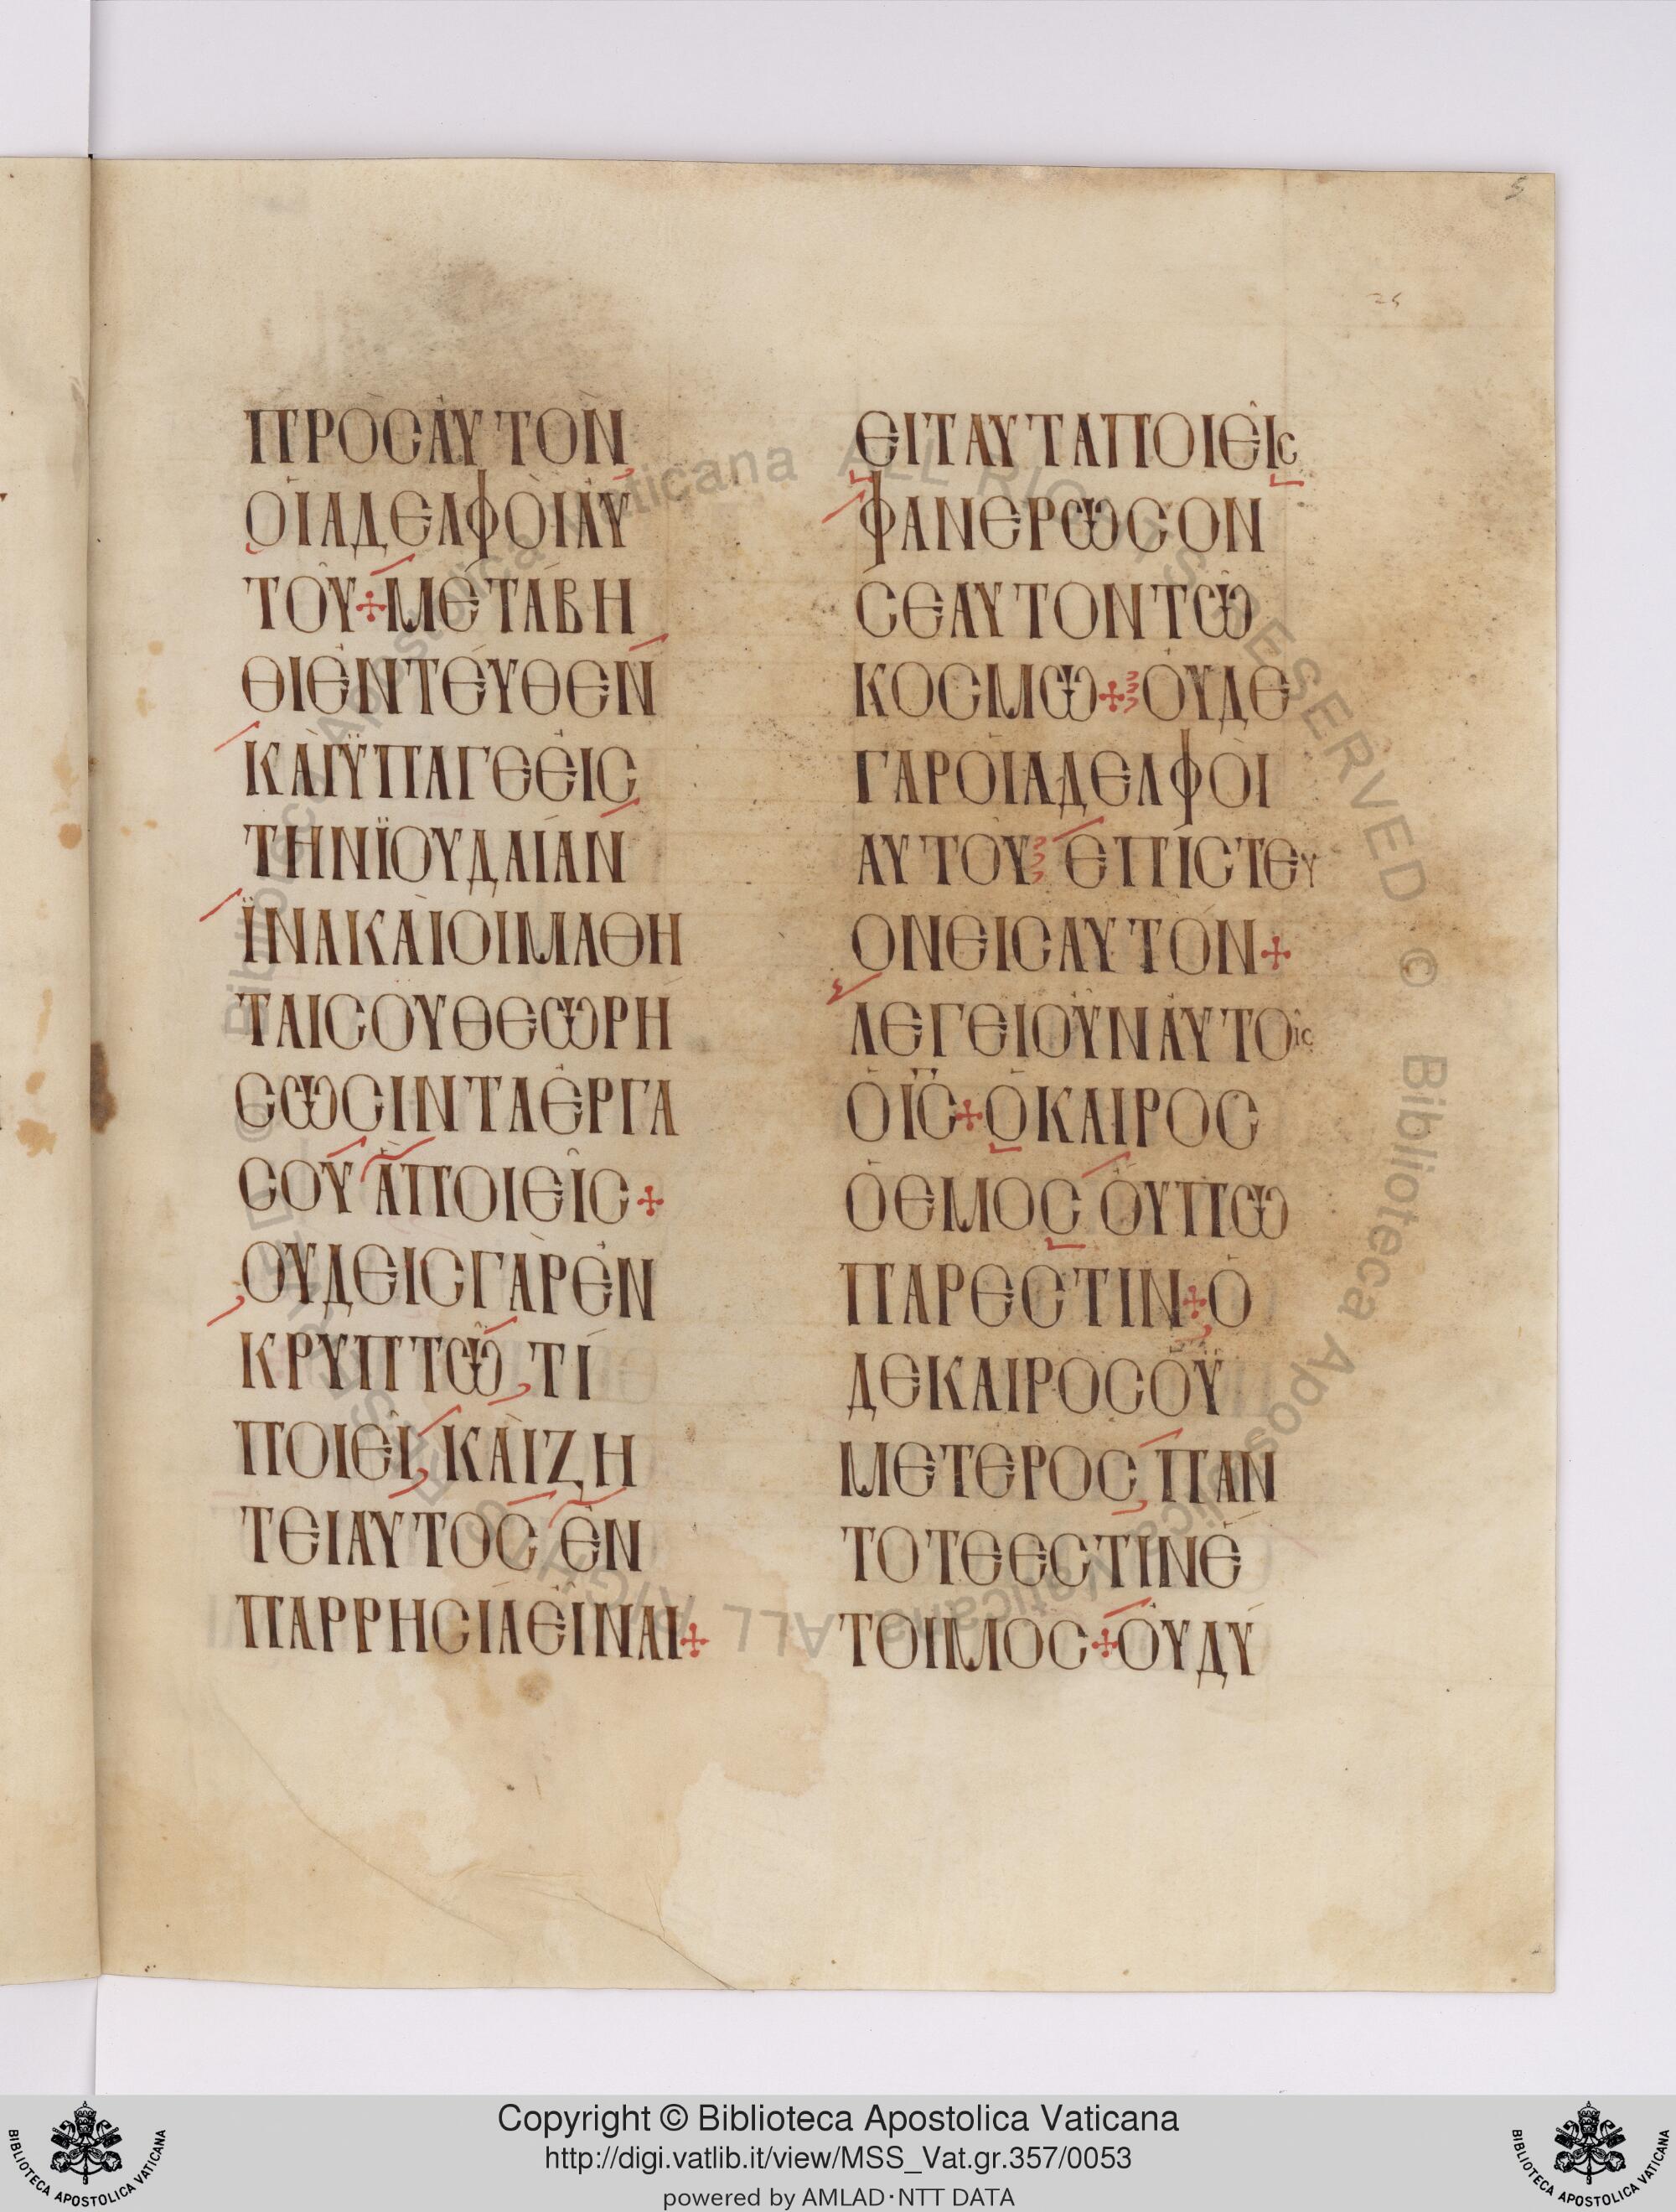 5
25
ΠΡῸCἈΥΤῸΝ
ΟἹΑΔΕΛΦΟῚἈΥ
ΤΟΥ͂+ΜΕΤΆΒΗ
ΘΙἘΝΤΕΥ͂ΘΕΝ
ΚΑῚΫΠΑΓΕΕἸC
ΤΗΝΪΟΥΔΑΊΑΝ
ΪΝΑΚΑῚΟΙΜΑΘΗ
ΤΑΙCΟΥΘΕΩΡΉ
CΩCΙΝΤΑἜΡΓΑ
CΟΥ ἋΠΟΙΕΙ͂C+
ΟΥΔΕΙCΓᾺΡἘΝ
ΚΡΥΠΤΩ͂,ΤΊ
ΠΟΙΕΙ͂,ΚΑῚΖΗ
ΤΕΙΑΥΤΟC ἘΝ
ΠΑΡΡΗCΊΑΕἾΝΑΙ+
ΕΙΤΑΥΤΑΠΟΙΕΙ͂C
ΦΑΝΕΡΩCΟΝ
CΕΑΥΤΟΝΤΩ͂
ΚΟCΜΩ+ΟΥ̓ΔΕ
ΓᾺΡΟἹΑΔΕΛΦΟῚ
ΑΥΤΟΥ͂ ἘΠΊCΤΕΥ
ΟΝΕΙCΑΥΤΌΝ+
ΛΕΓΕΙΟΥ͂ΝἈΥΤΟΙ͂C
ὉΙ̅C̅+ὉΚΑΙΡΟC
ὉΕΜΟC ΟΥ̓́ΠΩ
ΠΑΡΕCΤΙΝ+Ὁ
ΔΕΚΑΙΡΟCΟὙ
ΜΕΤΕΡΟC,ΠΑΝ
ΤΟΤΕΕCΤΙΝἝ
ΤΟΙΜΟC+ΟΥ̓ΔΎ
Copyright © Biblioteca Apostolica Vaticana
http://digi.vatlib.it/view/MSS_Vat.gr.357/0053
powered by AMLAD·NTT DATA
BIBLIOTECA APOSTOLICA VATICANA
BIBLIOTECA APOSTOLICA VATICANA